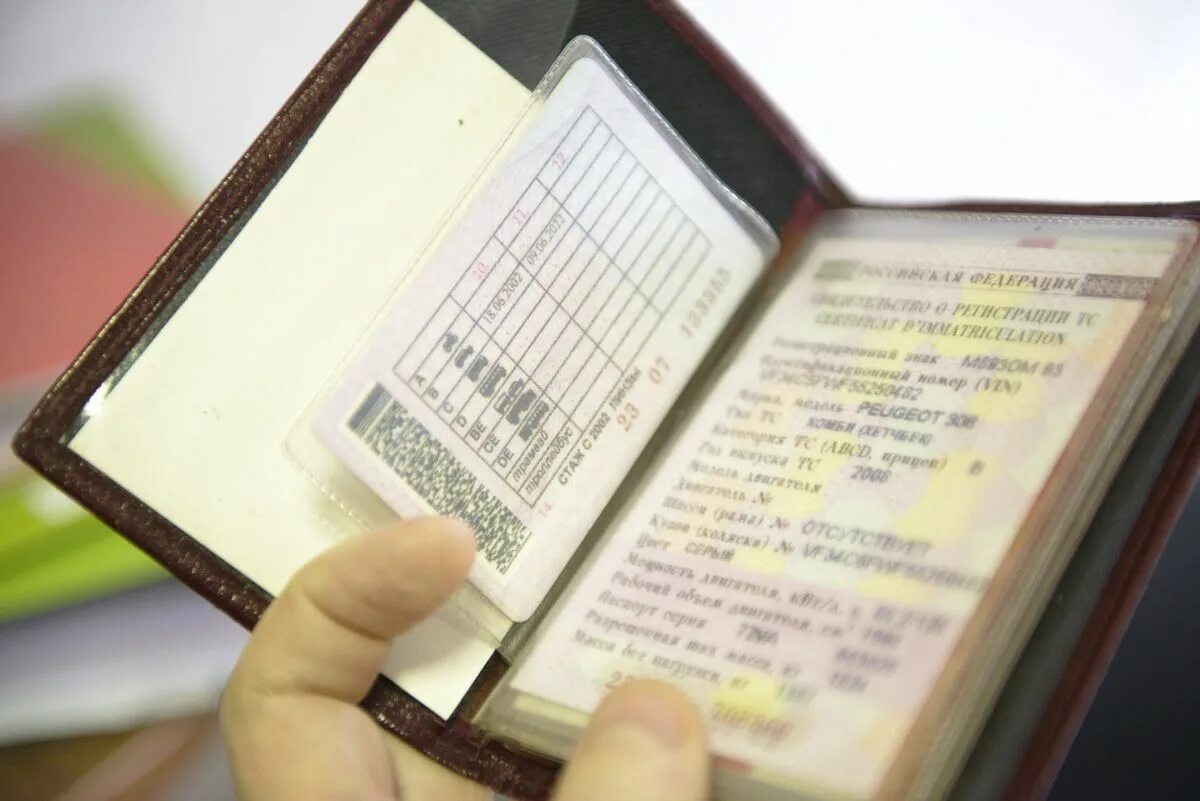 10.
11.
12
A
B 18.06.2002 09.06.2022
C
D
BE
CE
DE
трамвай
троллейбус
14.
СТАЖ С 2002
23 07
РОССИЙСКАЯ ФЕДЕРАЦИЯ
СВИДЕТЕЛЬСТВО О РЕГИСТРАЦИИ ТС
CERTIFICAT D'IMMATRICULATION
Регистрационный знак М593ОМ 93
Идентификационный номер (VIN)
Марка, модель PEUGEOT 308
Тип ТС КОМБИ (ХЕТЧБЕК)
Категория ТС (ABCD, прицеп) B
Год выпуска ТС 2008
Модель двигателя
Двигатель №
Шасси (рама) № ОТСУТСТВУЕТ
Кузов (коляска) №
Цвет СЕРЫЙ
Мощность двигателя, кВт/л. с.
Рабочий объем двигателя,
Паспорт серия
Разрешенная max масса, кг
Масса без нагрузки, кг